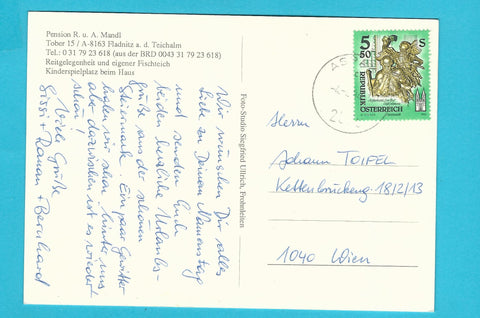 Pension R. u. A. Mandl
Tober 15 / A-8163 Fladnitz a. d. Teichalm
Tel.: 0 31 79 23 618 (aus der BRD 0043 31 79 23 618)
Reitgelegenheit und eigener Fischteich
Kinderspielplatz beim Haus
Wir wünschen Dir alles
Liebe zu Deinem Namenstag
und senden Euch
beiden herzliche Urlaubs-
grüße aus der schönen
Steiermark. Ein paar Gewitter
haben wir schon hinter uns
aber dazwischen ist es wieder
schön!
Viele Grüße
Sissi + Roman + Bernhard
Foto-Studio Siegfried Ullrich, Frohnleiten
5 50
S
REPUBLIK
ÖSTERREICH
Herrn
Johann TOIFEL
Kettenbrückeng. 18/2/13
1040 Wien